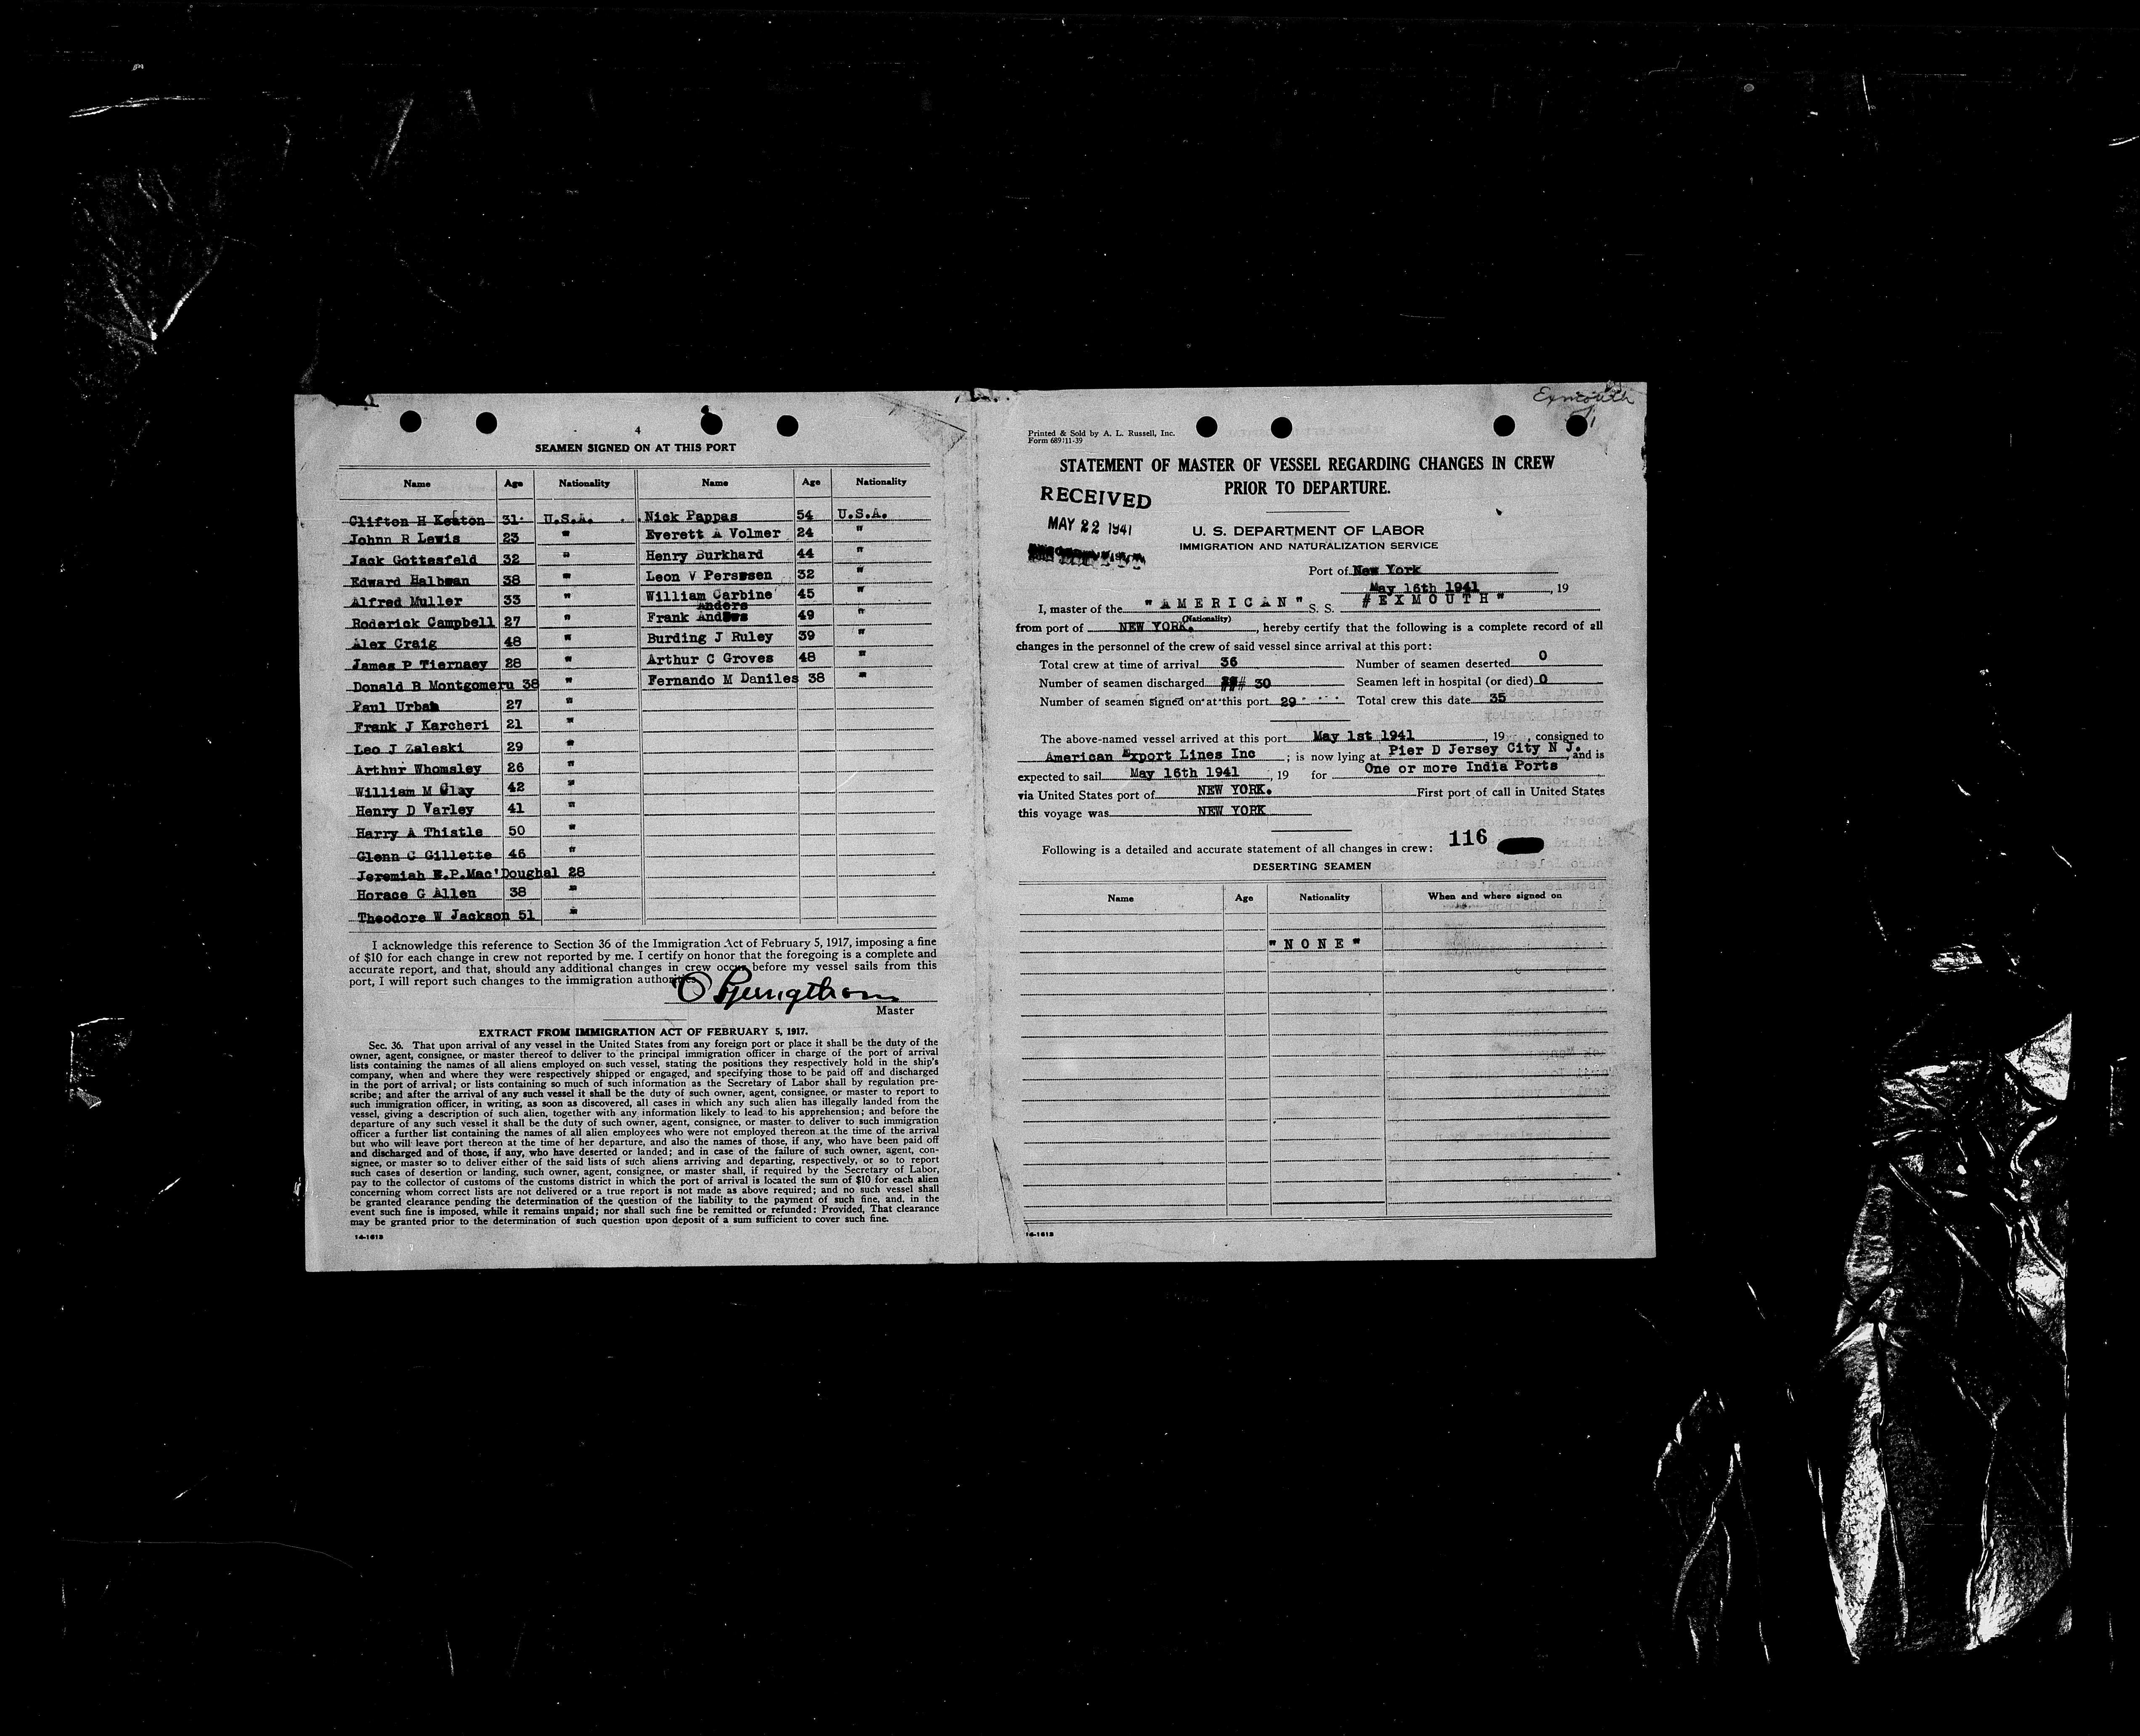 4
SEAMEN SIGNED ON AT THIS PORT
Name Age Nationality Name Age Nationality
Clifton H Keaton 31 U.S.A. Nick Pappas 54 U.S.A.
Johnn R Lewis 23 " Everett A Volmer 24 "
Jack Gottesfeld 32 " Henry Burkhard 44 "
Edward Halbman 38 " Leon V Perssen 32 "
Alfred Muller 33 " William Carbine 45 "
Anders
Roderick Campbell 27 " Frank 49 "
Alex Craig 48 " Burding J Ruley 39 "
James P Tiernaey 28 " Arthur C Groves 48 "
Donald B Montgomeru 38 " Fernando M Daniles 38 "
Paul Urban 27 "
Frank J Karcheri 21 "
Leo J Zaleski 29 "
Arthur Whomsley 26 "
William M Clay 42 "
Henry D Varley 41 "
Harry A Thistle 50 "
Glenn C Gillette 46 "
Jeremiah E.P.Mac'Doughal 28
Horace G Allen 38 "
Theodore W Jackson 51 "
I acknowledge this reference to Section 36 of the Immigration Act of February 5, 1917, imposing a fine
of $10 for each change in crew not reported by me. I certify on honor that the foregoing is a complete and
accurate report, and that, should any additional changes in crew occur before my vessel sails from this
port, I will report such changes to the immigration authorities.
Master
EXTRACT FROM IMMIGRATION ACT OF FEBRUARY 5, 1917.
Sec. 36. That upon arrival of any vessel in the United States from any foreign port or place it shall be the duty of the
owner, agent, consignee, or master thereof to deliver to the principal immigration officer in charge of the port of arrival
lists containing the names of all aliens employed on such vessel, stating the positions they respectively hold in the ship's
company, when and where they were respectively shipped or engaged, and specifying those to be paid off and discharged
in the port of arrival; or lists containing so much of such information as the Secretary of Labor shall by regulation pre-
scribe; and after the arrival of any such vessel it shall be the duty of such owner, agent, consignee, or master to report to
such immigration officer, in writing, as soon as discovered, all cases in which any such alien has illegally landed from the
vessel, giving a description of such alien, together with any information likely to lead to his apprehension; and before the
departure of any such vessel it shall be the duty of such owner, agent, consignee, or master to deliver to such immigration
officer a further list containing the names of all alien employees who were not employed thereon at the time of the arrival
but who will leave port thereon at the time of her departure, and also the names of those, if any, who have been paid off
and discharged and of those, if any, who have deserted or landed; and in case of the failure of such owner, agent, con-
signee, or master so to deliver either of the said lists of such aliens arriving and departing, respectively, or so to report
such cases of desertion or landing, such owner, agent, consignee, or master shall, if required by the Secretary of Labor,
pay to the collector of customs of the customs district in which the port of arrival is located the sum of $10 for each alien
concerning whom correct lists are not delivered or a true report is not made as above required; and no such vessel shall
be granted clearance pending the determination of the question of the liability to the payment of such fine, and, in the
event such fine is imposed, while it remains unpaid; nor shall such fine be remitted or refunded: Provided, That clearance
may be granted prior to the determination of such question upon deposit of a sum sufficient to cover such fine.
14-1613
Exmouth
Printed & Sold by A. L. Russell, Inc.
Form 689 11-39
STATEMENT OF MASTER OF VESSEL REGARDING CHANGES IN CREW
PRIOR TO DEPARTURE.
RECEIVED
MAY 22 1941
U. S. DEPARTMENT OF LABOR
IMMIGRATION AND NATURALIZATION SERVICE
Port of New York
May 16th 1941, 19
I, master of the "AMERICAN" S. S. #EXMOUTH"
(Nationality)
from port of NEW YORK., hereby certify that the following is a complete record of all
changes in the personnel of the crew of said vessel since arrival at this port:
Total crew at time of arrival 36 Number of seamen deserted 0
Number of seamen discharged 30 Seamen left in hospital (or died) 0
Number of seamen signed on at this port 29 Total crew this date 35
The above-named vessel arrived at this port May 1st 1941, 19 , consigned to
American Export Lines Inc ; is now lying at Pier D Jersey City N J., and is
expected to sail May 16th 1941, 19 for One or more India Ports
via United States port of NEW YORK. First port of call in United States
this voyage was NEW YORK
Following is a detailed and accurate statement of all changes in crew: 116
DESERTING SEAMEN
Name Age Nationality When and where signed on
"NONE"
14-1613